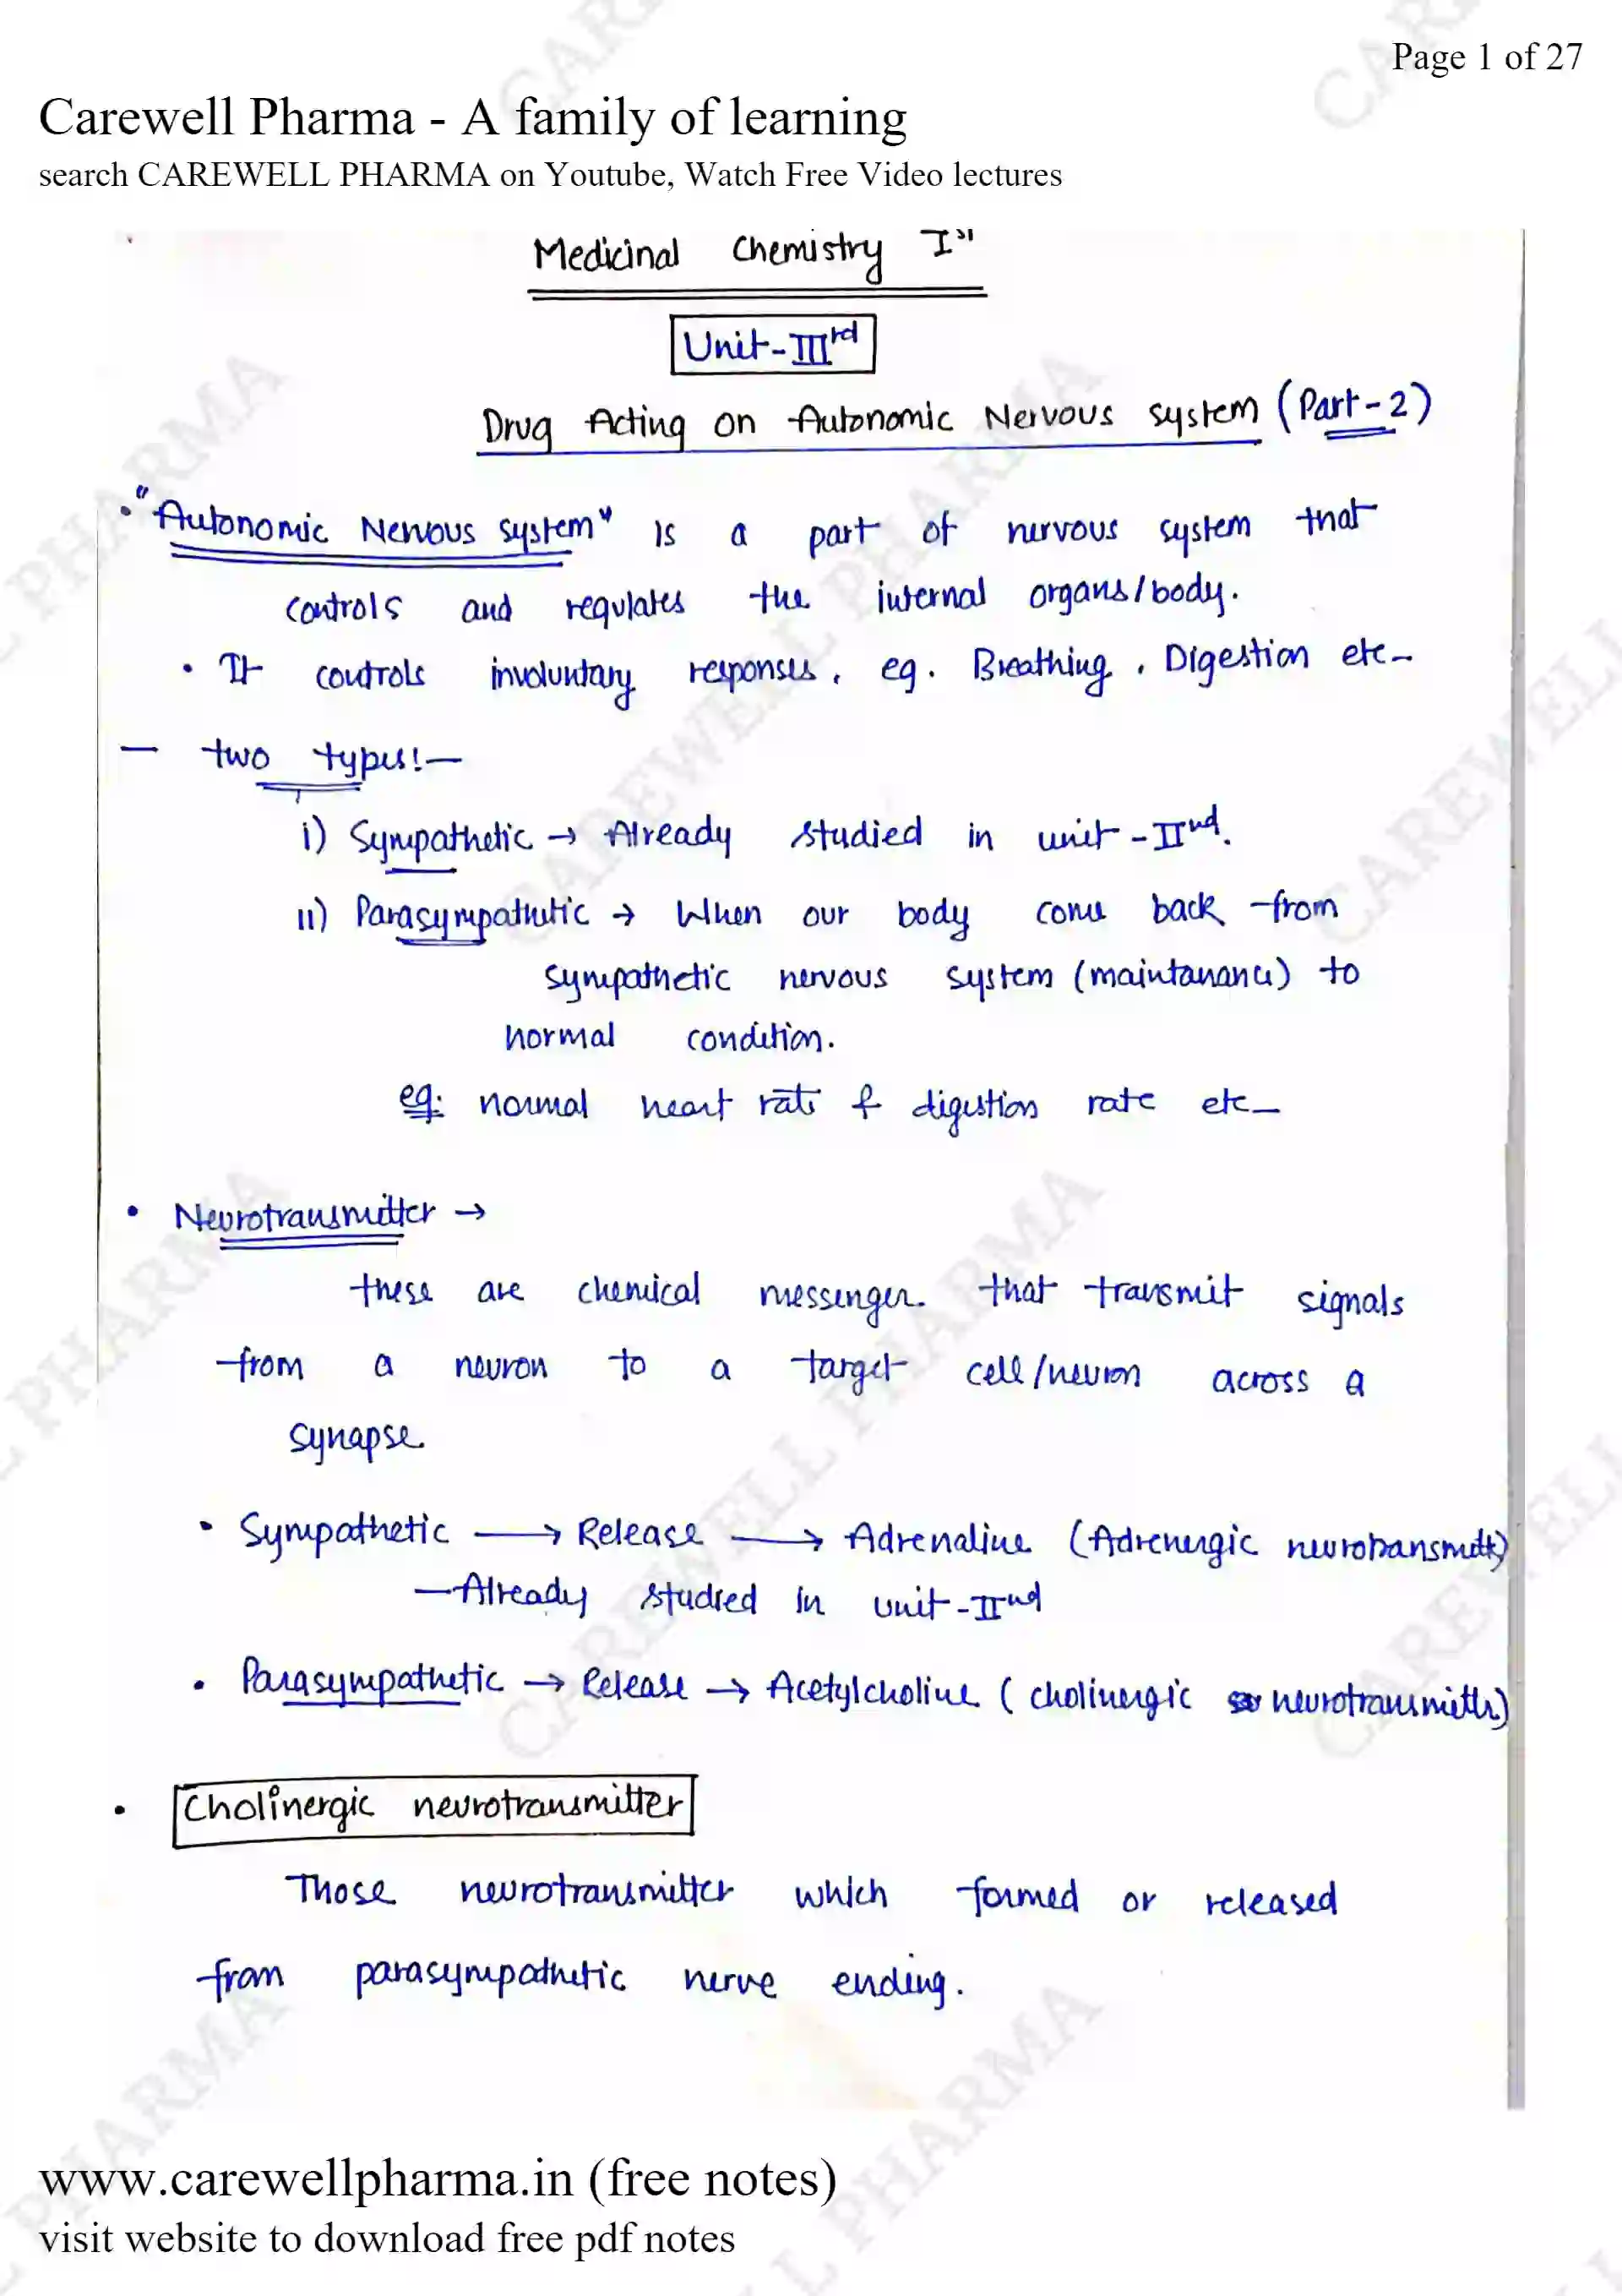 Page 1 of 27
Carewell Pharma - A family of learning
search CAREWELL PHARMA on Youtube, Watch Free Video lectures
Medicinal Chemistry "I"
Unit-IIIrd
Drug Acting on Autonomic Nervous system (Part-2)
• "Autonomic Nervous system" is a part of nervous system that
controls and regulates the internal organs/body.
• It controls involuntary responses, eg. Breathing, Digestion etc-
— two types:—
i) Sympathetic → Already studied in unit-IInd.
ii) Parasympathetic → When our body come back from
sympathetic nervous system (maintanance) to
normal condition.
eg: normal heart rate & digestion rate etc-
• Neurotransmitter →
these are chemical messenger. that transmit signals
from a neuron to a target cell/neuron across a
synapse.
• Sympathetic → Release → Adrenaline (Adrenergic neurotransmitter)
— Already studied in unit-IInd
• Parasympathetic → Release → Acetylcholine (cholinergic neurotransmitter)
• Cholinergic neurotransmitter
Those neurotransmitter which formed or released
from parasympathetic nerve ending.
www.carewellpharma.in (free notes)
visit website to download free pdf notes